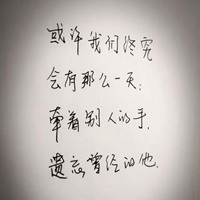 或许我们终究
会有那么一天,
牵着别人的手,
遗忘曾经的他.